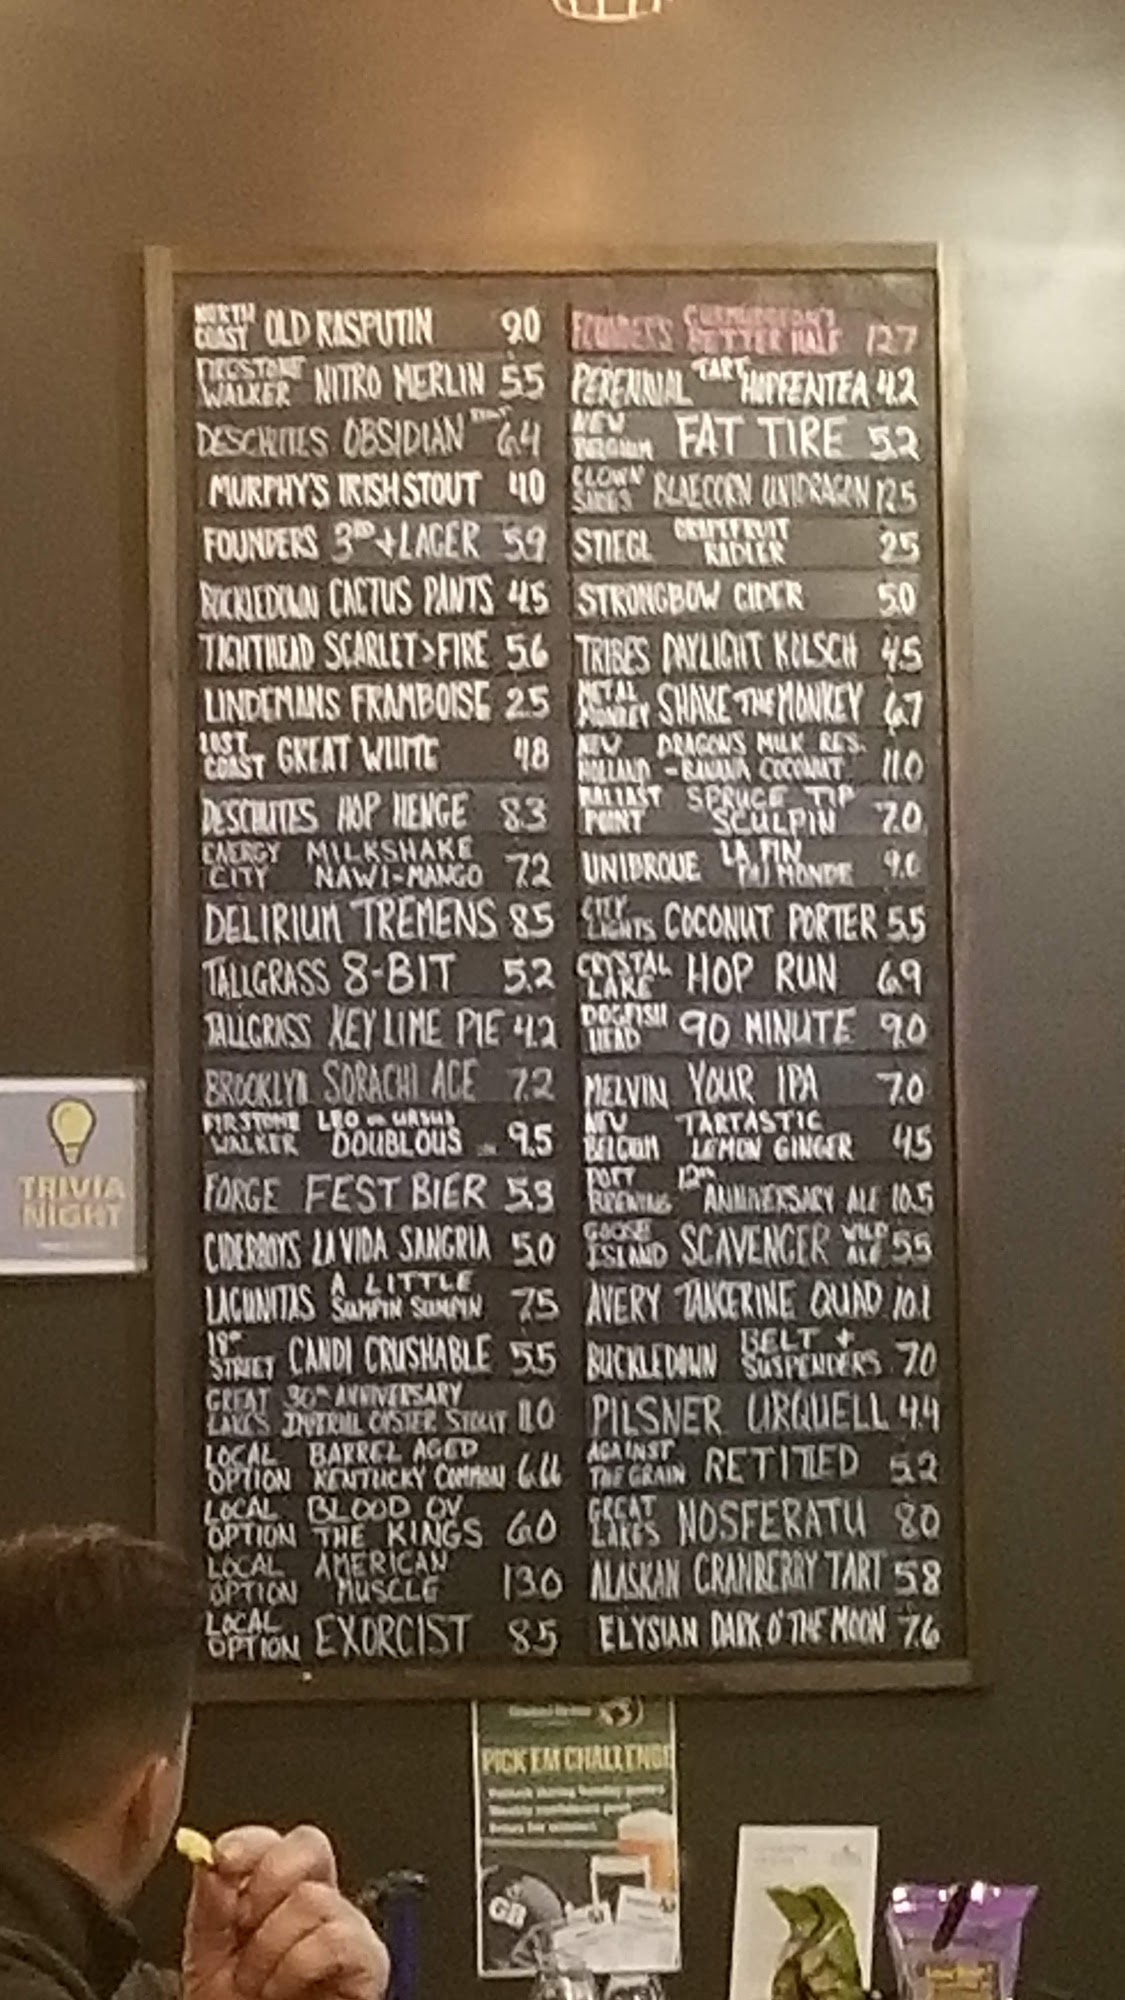 NORTH COAST OLD RASPUTIN 9.0
FIRESTONE WALKER NITRO MERLIN 5.5
DESCHUTES OBSIDIAN STOUT 6.4
MURPHY'S IRISH STOUT 4.0
FOUNDERS 3RD + LAGER 5.9
BUCKLEDOWN CACTUS PANTS 4.5
TIGHTHEAD SCARLET>FIRE 5.6
LINDEMANS FRAMBOISE 2.5
LOST COAST GREAT WHITE 4.8
DESCHUTES HOP HENGE 8.3
ENERGY CITY MILKSHAKE NAWI-MANGO 7.2
DELIRIUM TREMENS 8.5
TALLGRASS 8-BIT 5.2
TALLGRASS KEY LIME PIE 4.2
BROOKLYN SORACHI ACE 7.2
FIRSTONE WALKER LEO v. URSUS DOUBLOUS 9.5
FORGE FEST BIER 5.3
CIDERBOYS LA VIDA SANGRIA 5.0
LAGUNITAS A LITTLE SUMPIN SUMPIN 7.5
18TH STREET CANDI CRUSHABLE 5.5
GREAT LAKES 30TH ANNIVERSARY IMPERIAL OYSTER STOUT 11.0
LOCAL OPTION BARREL AGED KENTUCKY COMMON 6.66
LOCAL OPTION BLOOD OV THE KINGS 6.0
LOCAL OPTION AMERICAN MUSCLE 13.0
LOCAL OPTION EXORCIST 8.5
FOUNDERS CURMUDGEON'S BETTER HALF 12.7
PERENNIAL TART HOPFENTEA 4.2
NEW BELGIUM FAT TIRE 5.2
CLOWN SHOES BLAECORN UNIDRAGON 12.5
STIEGL GRAPEFRUIT RADLER 2.5
STRONGBOW CIDER 5.0
TRIBES DAYLIGHT KOLSCH 4.5
METAL MONKEY SHAKE THE MONKEY 6.7
NEW HOLLAND DRAGON'S MILK RES. - BANANA COCONUT 11.0
BALLAST POINT SPRUCE TIP SCULPIN 7.0
UNIBROUE LA FIN DU MONDE 9.0
CITY LIGHTS COCONUT PORTER 5.5
CRYSTAL LAKE HOP RUN 6.9
DOGFISH HEAD 90 MINUTE 9.0
MELVIN YOUR IPA 7.0
NEW BELGIUM TARTASTIC LEMON GINGER 4.5
PORT BREWING 12TH ANNIVERSARY ALE 10.5
GOOSE ISLAND SCAVENGER WILD ALE 5.5
AVERY TANGERINE QUAD 10.1
BUCKLEDOWN BELT + SUSPENDERS 7.0
PILSNER URQUELL 4.4
AGAINST THE GRAIN RETITLED 5.2
GREAT LAKES NOSFERATU 8.0
ALASKAN CRANBERRY TART 5.8
ELYSIAN DARK O' THE MOON 7.6
TRIVIA
NIGHT
PICK EM CHALLENGE
GB